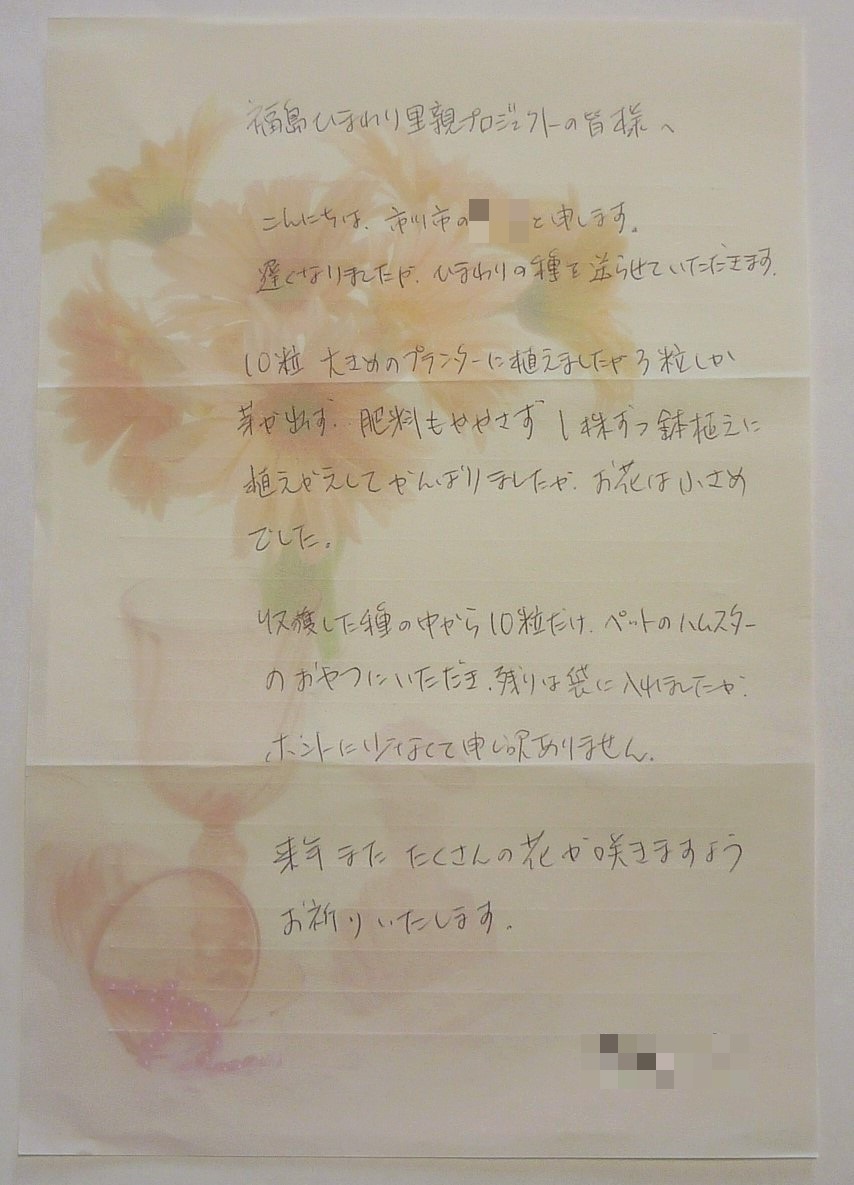 福島ひまわり里親プロジェクトの皆様へ
こんにちは、市川市の と申します。
遅くなりましたが、ひまわりの種を送らせていただきます。
10粒 大きめのプランターに植えましたが3粒しか
芽が出ず、肥料もややさず 1株ずつ鉢植えに
植えかえしてがんばりましたが、お花は小さめ
でした。
収穫した種の中から10粒だけ、ペットのハムスター
のおやつにいただき、残りは袋に入れましたが、
ホントに少なくて申し訳ありません。
来年また たくさんの花が咲きますよう
お祈りいたします。